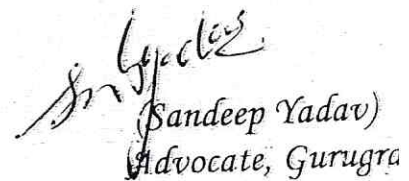 (Sandeep Yadav)
Advocate, Gurugra